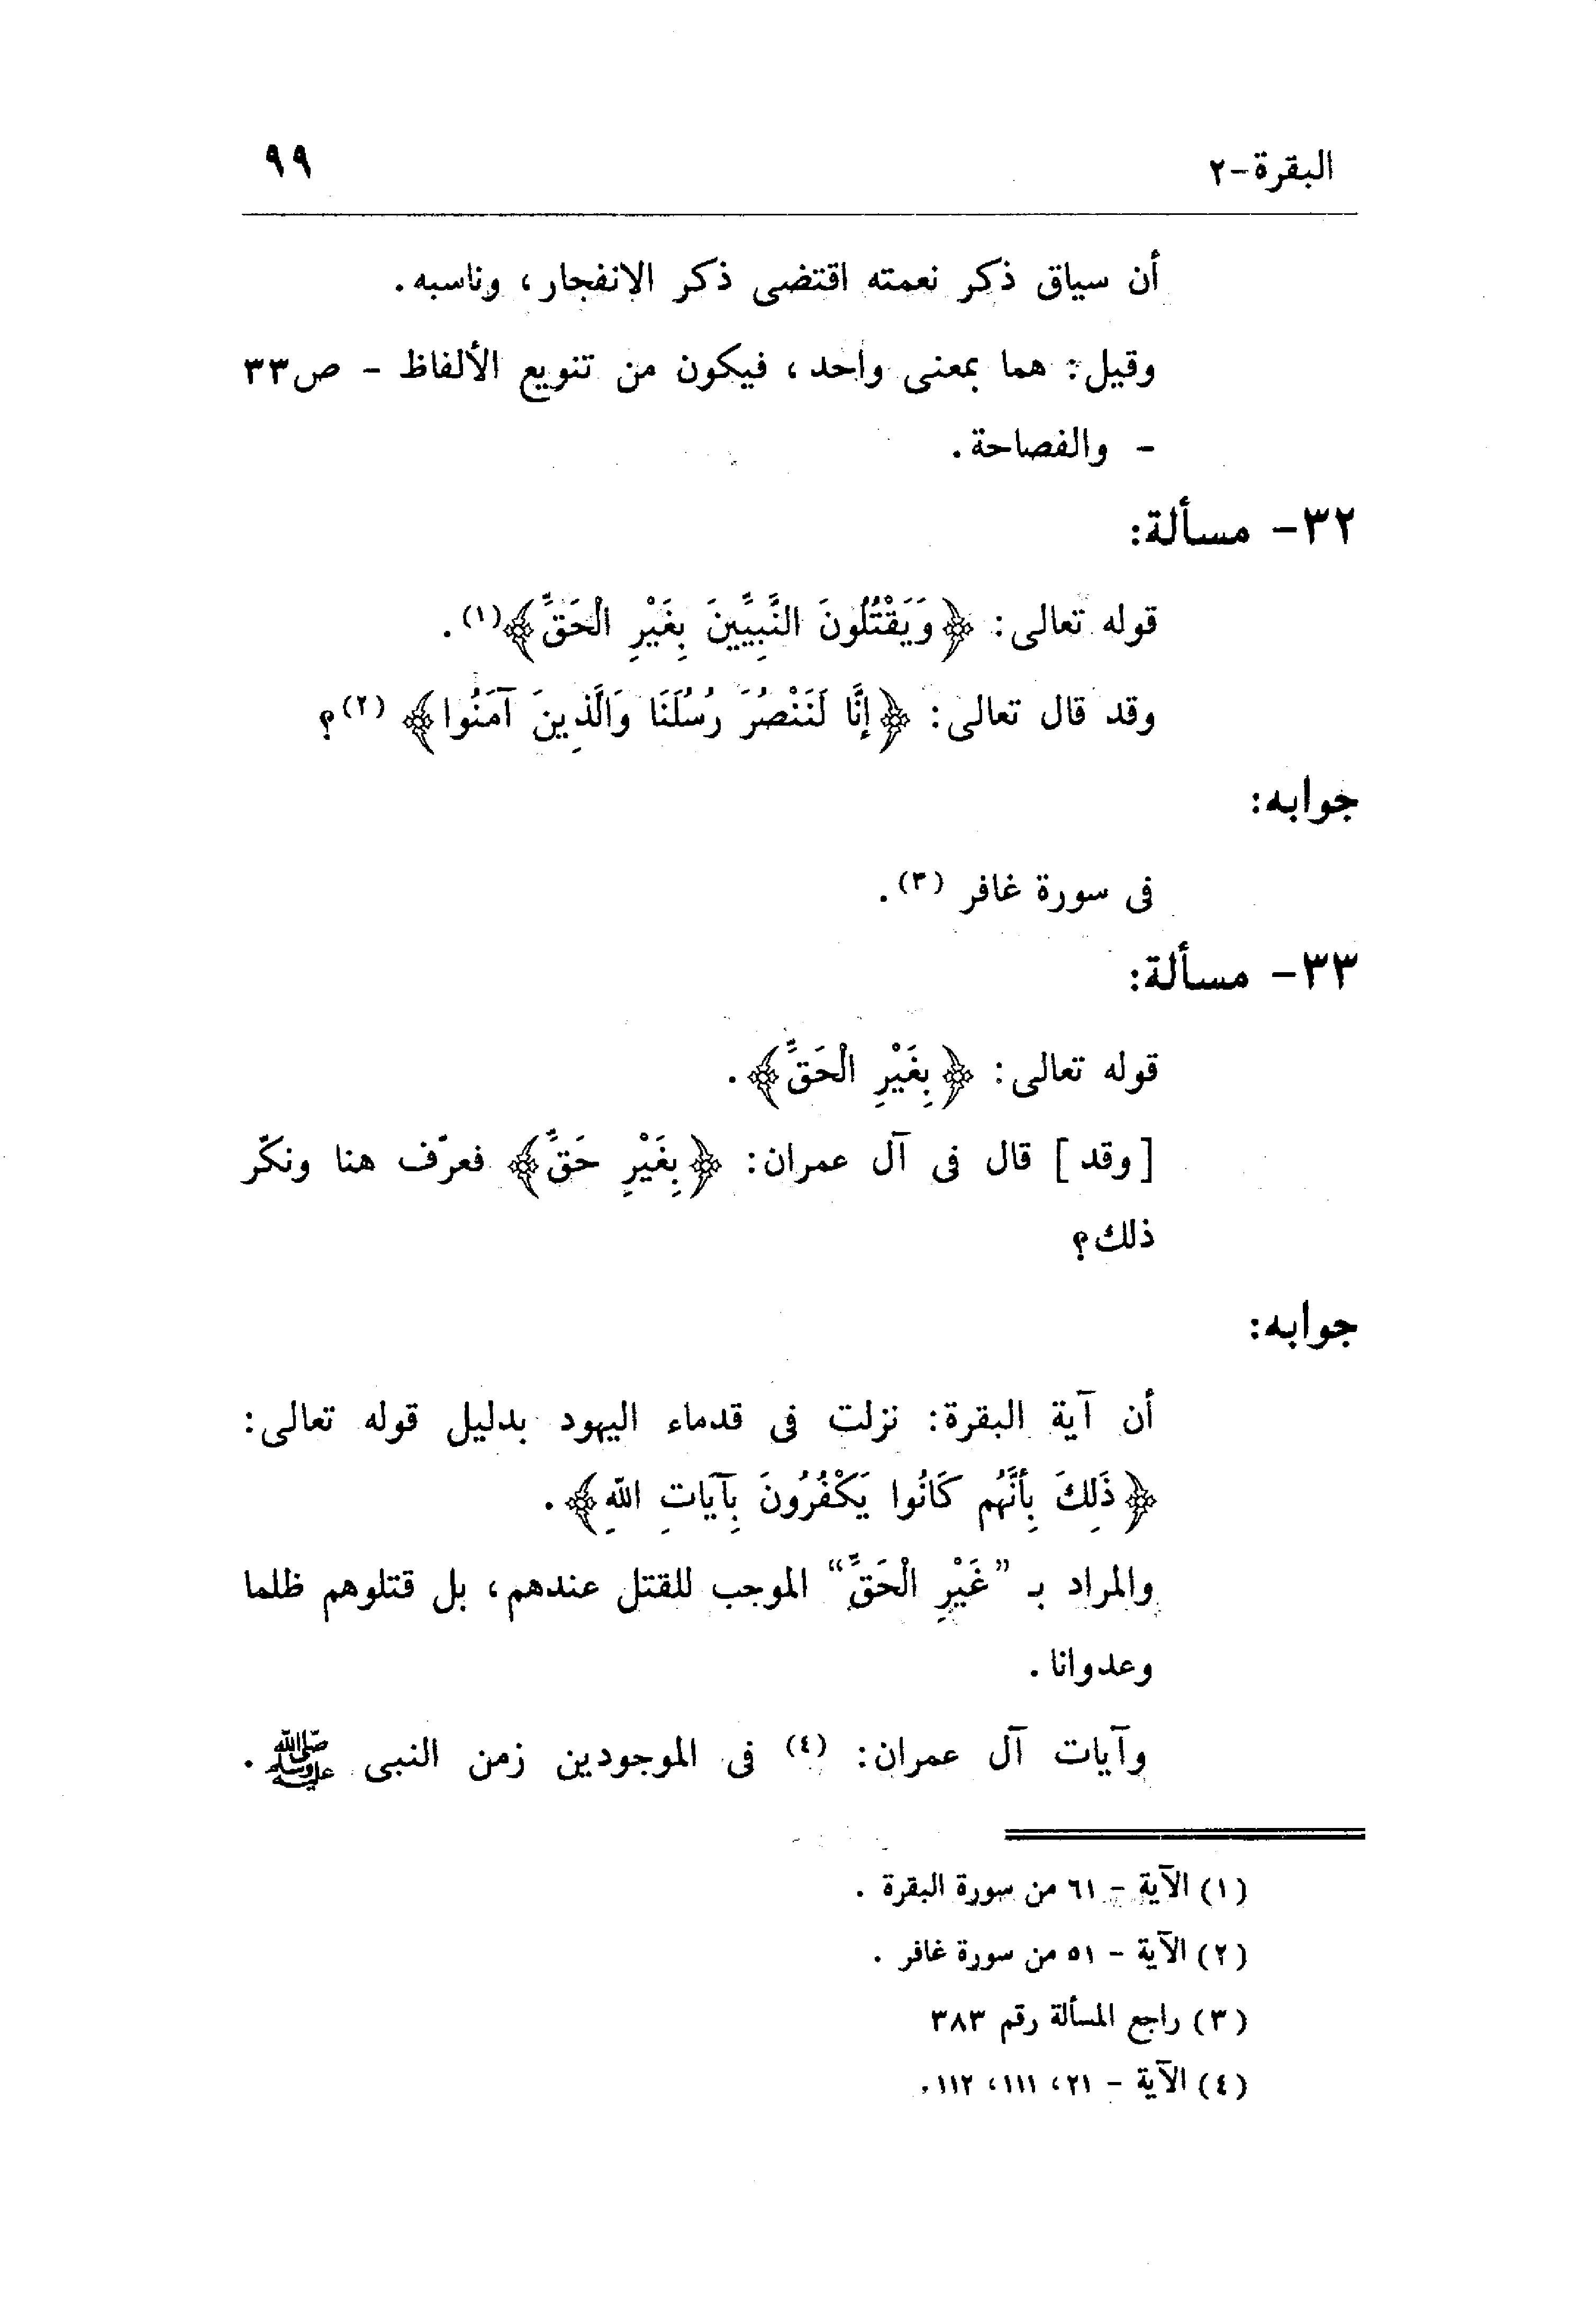 البقرة-٢ ٩٩
أن سياق ذكر نعمته اقتضى ذكر الانفجار، وناسبه.
وقيل: هما بمعنى واحد، فيكون من تنويع الألفاظ - ص٣٣
- والفصاحة.
٣٢- مسألة:
قوله تعالى: ﴿وَيَقْتُلُونَ النَّبِيِّينَ بِغَيْرِ الْحَقِّ﴾(١).
وقد قال تعالى: ﴿إِنَّا لَنَنْصُرُ رُسُلَنَا وَالَّذِينَ آمَنُوا﴾ (٢)؟
جوابه:
فى سورة غافر (٣).
٣٣- مسألة:
قوله تعالى: ﴿بِغَيْرِ الْحَقِّ﴾.
[وقد] قال فى آل عمران: ﴿بِغَيْرِ حَقٍّ﴾ فعرّف هنا ونكّر
ذلك؟
جوابه:
أن آية البقرة: نزلت فى قدماء اليهود بدليل قوله تعالى:
﴿ذَلِكَ بِأَنَّهُم كَانُوا يَكْفُرُونَ بِآيَاتِ اللَّهِ﴾.
والمراد بـ "غَيْرِ الْحَقِّ" الموجب للقتل عندهم، بل قتلوهم ظلما
وعدوانا.
وآيات آل عمران: (٤) فى الموجودين زمن النبى ﷺ.
(١) الآية - ٦١ من سورة البقرة .
(٢) الآية - ٥١ من سورة غافر .
(٣) راجع المسألة رقم ٣٨٣
(٤) الآية - ٢١، ١١١، ١١٢.